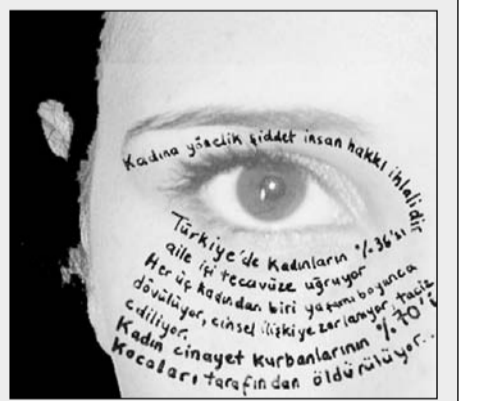 Kadına yönelik şiddet insan hakkı ihlalidir
Türkiye'de Kadınların %36'sı
aile içi tecavüze uğruyor
Her üç kadından biri yaşamı boyunca
dövülüyor, cinsel ilişkiye zorlanıyor, taciz
ediliyor.
Kadın cinayet kurbanlarının %70'i
Kocaları tarafından öldürülüyor..